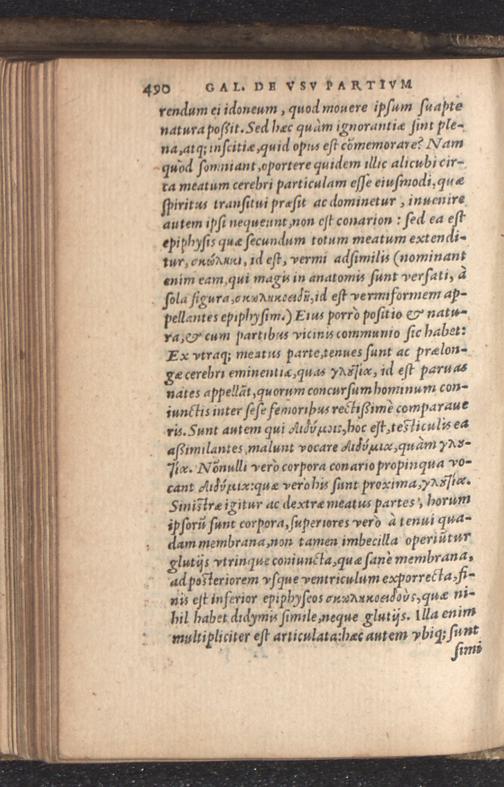 490 GAL. DE VSV PARTIVM
rendum ei idoneum, quod mouere ipsum suapte
natura poßit. Sed hæc quàm ignorantiæ sint ple-
na, atq; inscitiæ, quid opus est cõmemorare? Nam
quòd somniant, oportere quidem illic alicubi cir-
ca meatum cerebri particulam esse eiusmodi, quæ
spiritus transitui præsit ac dominetur, inuenire
autem ipsi nequeunt, non est conarion: sed ea est
epiphysis quæ secundum totum meatum extendi-
tur, σκώληκι, id est, vermi adsimilis (nominant
enim eam, qui magis in anatomis sunt versati, à
sola figura, σκωληκοειδῆ, id est vermiformem ap-
pellantes epiphysim.) Eius porrò positio & natu-
ra, & cum partibus vicinis communio sic habet:
Ex vtraq; meatus parte, tenues sunt ac prælon-
gæ cerebri eminentiæ, quas γλουτία, id est paruas
nates appellãt, quorum concursum hominum con-
iunctis inter sese femoribus rectißimè comparaue
ris. Sunt autem qui διδύμοις, hoc est, testiculis ea
aßimilantes, malunt vocare διδύμια, quàm γλου-
τία. Nõnulli verò corpora conario propinqua vo-
cant διδύμια: quæ verò his sunt proxima, γλουτία.
Sinistræ igitur ac dextræ meatus partes, horum
ipsorũ sunt corpora, superiores verò à tenui qua-
dam membrana, non tamen imbecilla operiũtur
glutijs vtrinque coniuncta, quæ sanè membrana,
ad posteriorem vsque ventriculum exporrecta, fi-
nis est inferior epiphyseos σκωληκοειδοῦς, quæ ni-
hil habet didymis simile, neque glutijs. Illa enim
multipliciter est articulata: hæc autem vbiq; sunt
simi